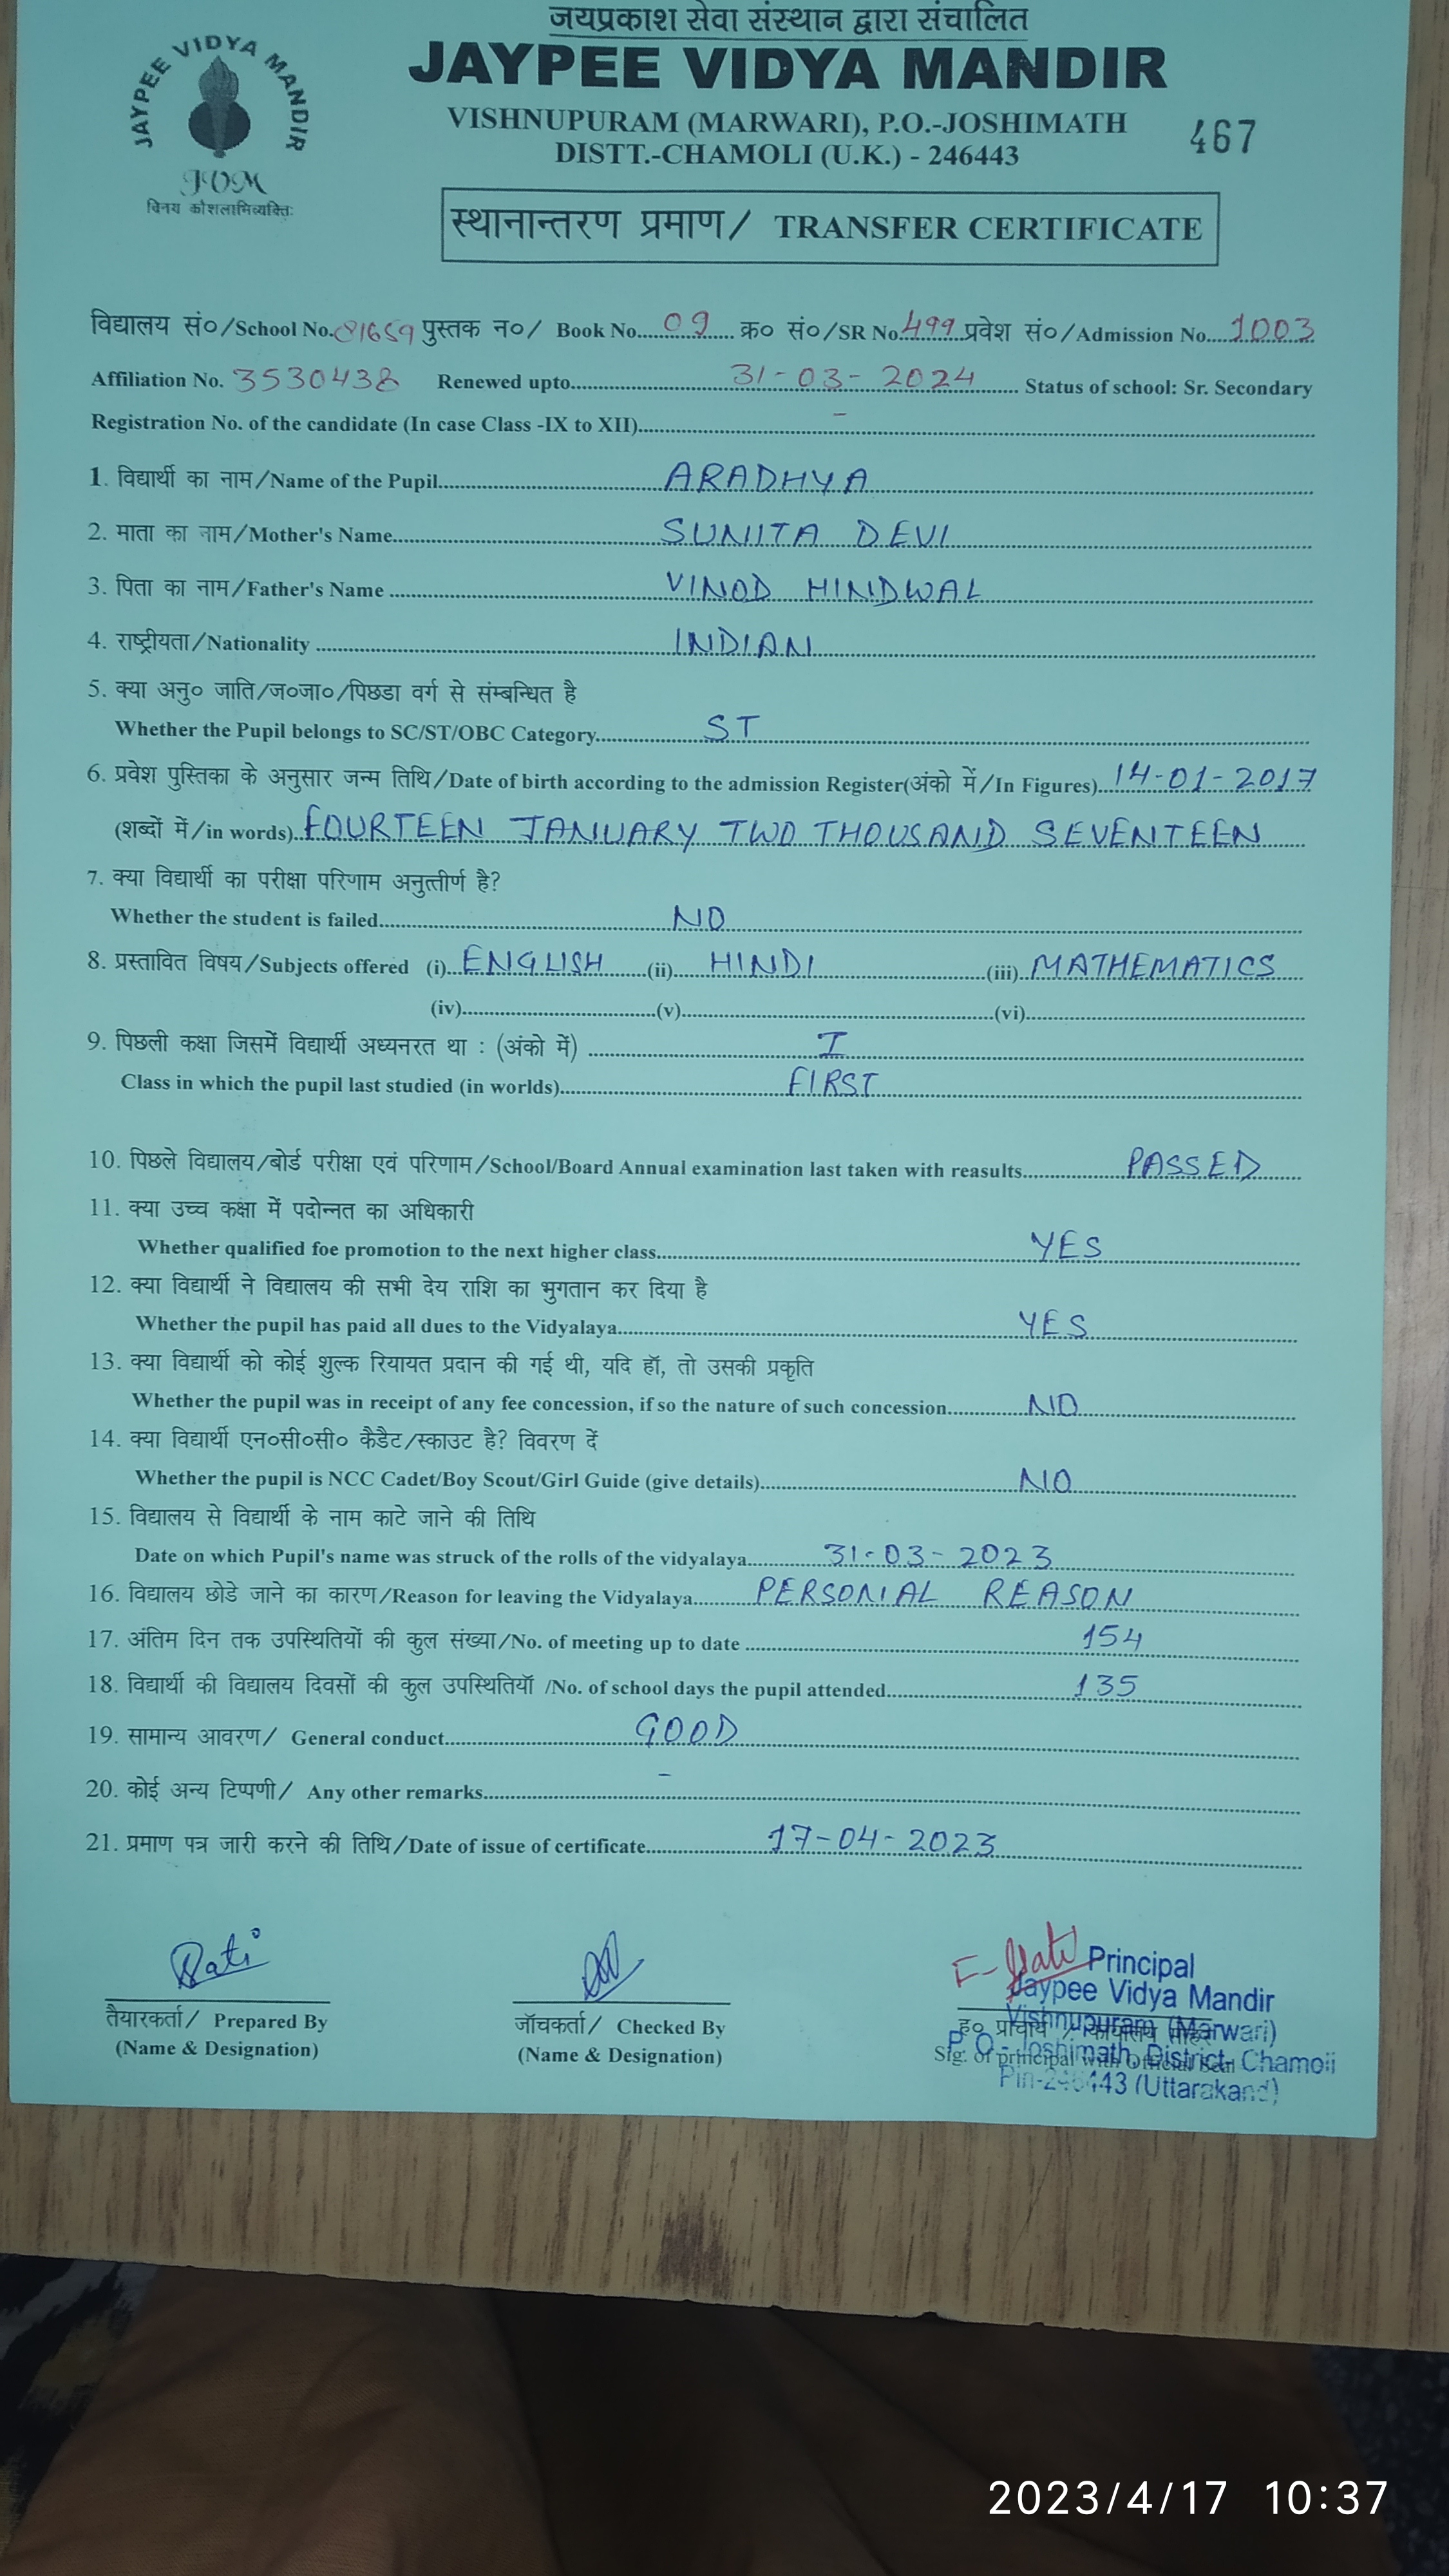 जयप्रकाश सेवा संस्थान द्वारा संचालित
JAYPEE VIDYA MANDIR
JAYPEE VIDYA MANDIR
VISHNUPURAM (MARWARI), P.O.-JOSHIMATH
DISTT.-CHAMOLI (U.K.) - 246443
467
विनय कौशलाभिव्यक्तिः
स्थानान्तरण प्रमाण/ TRANSFER CERTIFICATE
विद्यालय सं०/School No. 81659 पुस्तक न०/ Book No. 09 क्र० सं०/SR No 499 प्रवेश सं०/Admission No. 1003
Affiliation No. 3530438 Renewed upto 31-03-2024 Status of school: Sr. Secondary
Registration No. of the candidate (In case Class -IX to XII) -
1. विद्यार्थी का नाम/Name of the Pupil ARADHYA
2. माता का नाम/Mother's Name SUNITA DEVI
3. पिता का नाम/Father's Name VINOD HINDWAL
4. राष्ट्रीयता/Nationality INDIAN
5. क्या अनु० जाति/ज०जा०/पिछडा वर्ग से संम्बन्धित है
Whether the Pupil belongs to SC/ST/OBC Category ST
6. प्रवेश पुस्तिका के अनुसार जन्म तिथि/Date of birth according to the admission Register(अंको में/In Figures) 14-01-2017
(शब्दों में/in words) FOURTEEN JANUARY TWO THOUSAND SEVENTEEN
7. क्या विद्यार्थी का परीक्षा परिणाम अनुत्तीर्ण है?
Whether the student is failed NO
8. प्रस्तावित विषय/Subjects offered (i) ENGLISH (ii) HINDI (iii) MATHEMATICS
(iv) (v) (vi)
9. पिछली कक्षा जिसमें विद्यार्थी अध्यनरत था : (अंको में) I
Class in which the pupil last studied (in worlds) FIRST
10. पिछले विद्यालय/बोर्ड परीक्षा एवं परिणाम/School/Board Annual examination last taken with reasults PASSED
11. क्या उच्च कक्षा में पदोन्नत का अधिकारी
Whether qualified foe promotion to the next higher class YES
12. क्या विद्यार्थी ने विद्यालय की सभी देय राशि का भुगतान कर दिया है
Whether the pupil has paid all dues to the Vidyalaya YES
13. क्या विद्यार्थी को कोई शुल्क रियायत प्रदान की गई थी, यदि हॉ, तो उसकी प्रकृति
Whether the pupil was in receipt of any fee concession, if so the nature of such concession NO
14. क्या विद्यार्थी एन०सी०सी० कैडैट/स्काउट है? विवरण दें
Whether the pupil is NCC Cadet/Boy Scout/Girl Guide (give details) NO
15. विद्यालय से विद्यार्थी के नाम काटे जाने की तिथि
Date on which Pupil's name was struck of the rolls of the vidyalaya 31-03-2023
16. विद्यालय छोडे जाने का कारण/Reason for leaving the Vidyalaya PERSONIAL REASON
17. अंतिम दिन तक उपस्थितियों की कुल संख्या/No. of meeting up to date 154
18. विद्यार्थी की विद्यालय दिवसों की कुल उपस्थितियॉ /No. of school days the pupil attended 135
19. सामान्य आवरण/ General conduct GOOD
20. कोई अन्य टिप्पणी/ Any other remarks -
21. प्रमाण पत्र जारी करने की तिथि/Date of issue of certificate 17-04-2023
तैयारकर्ता/ Prepared By
(Name & Designation)
जॉचकर्ता/ Checked By
(Name & Designation)
Principal
Jaypee Vidya Mandir
Vishnupuram (Marwari)
ह० प्राचार्य
P. O.- Joshimath, District- Chamoli
Sig. of principal with Official Seal
Pin-246443 (Uttarakand)
2023/4/17 10:37